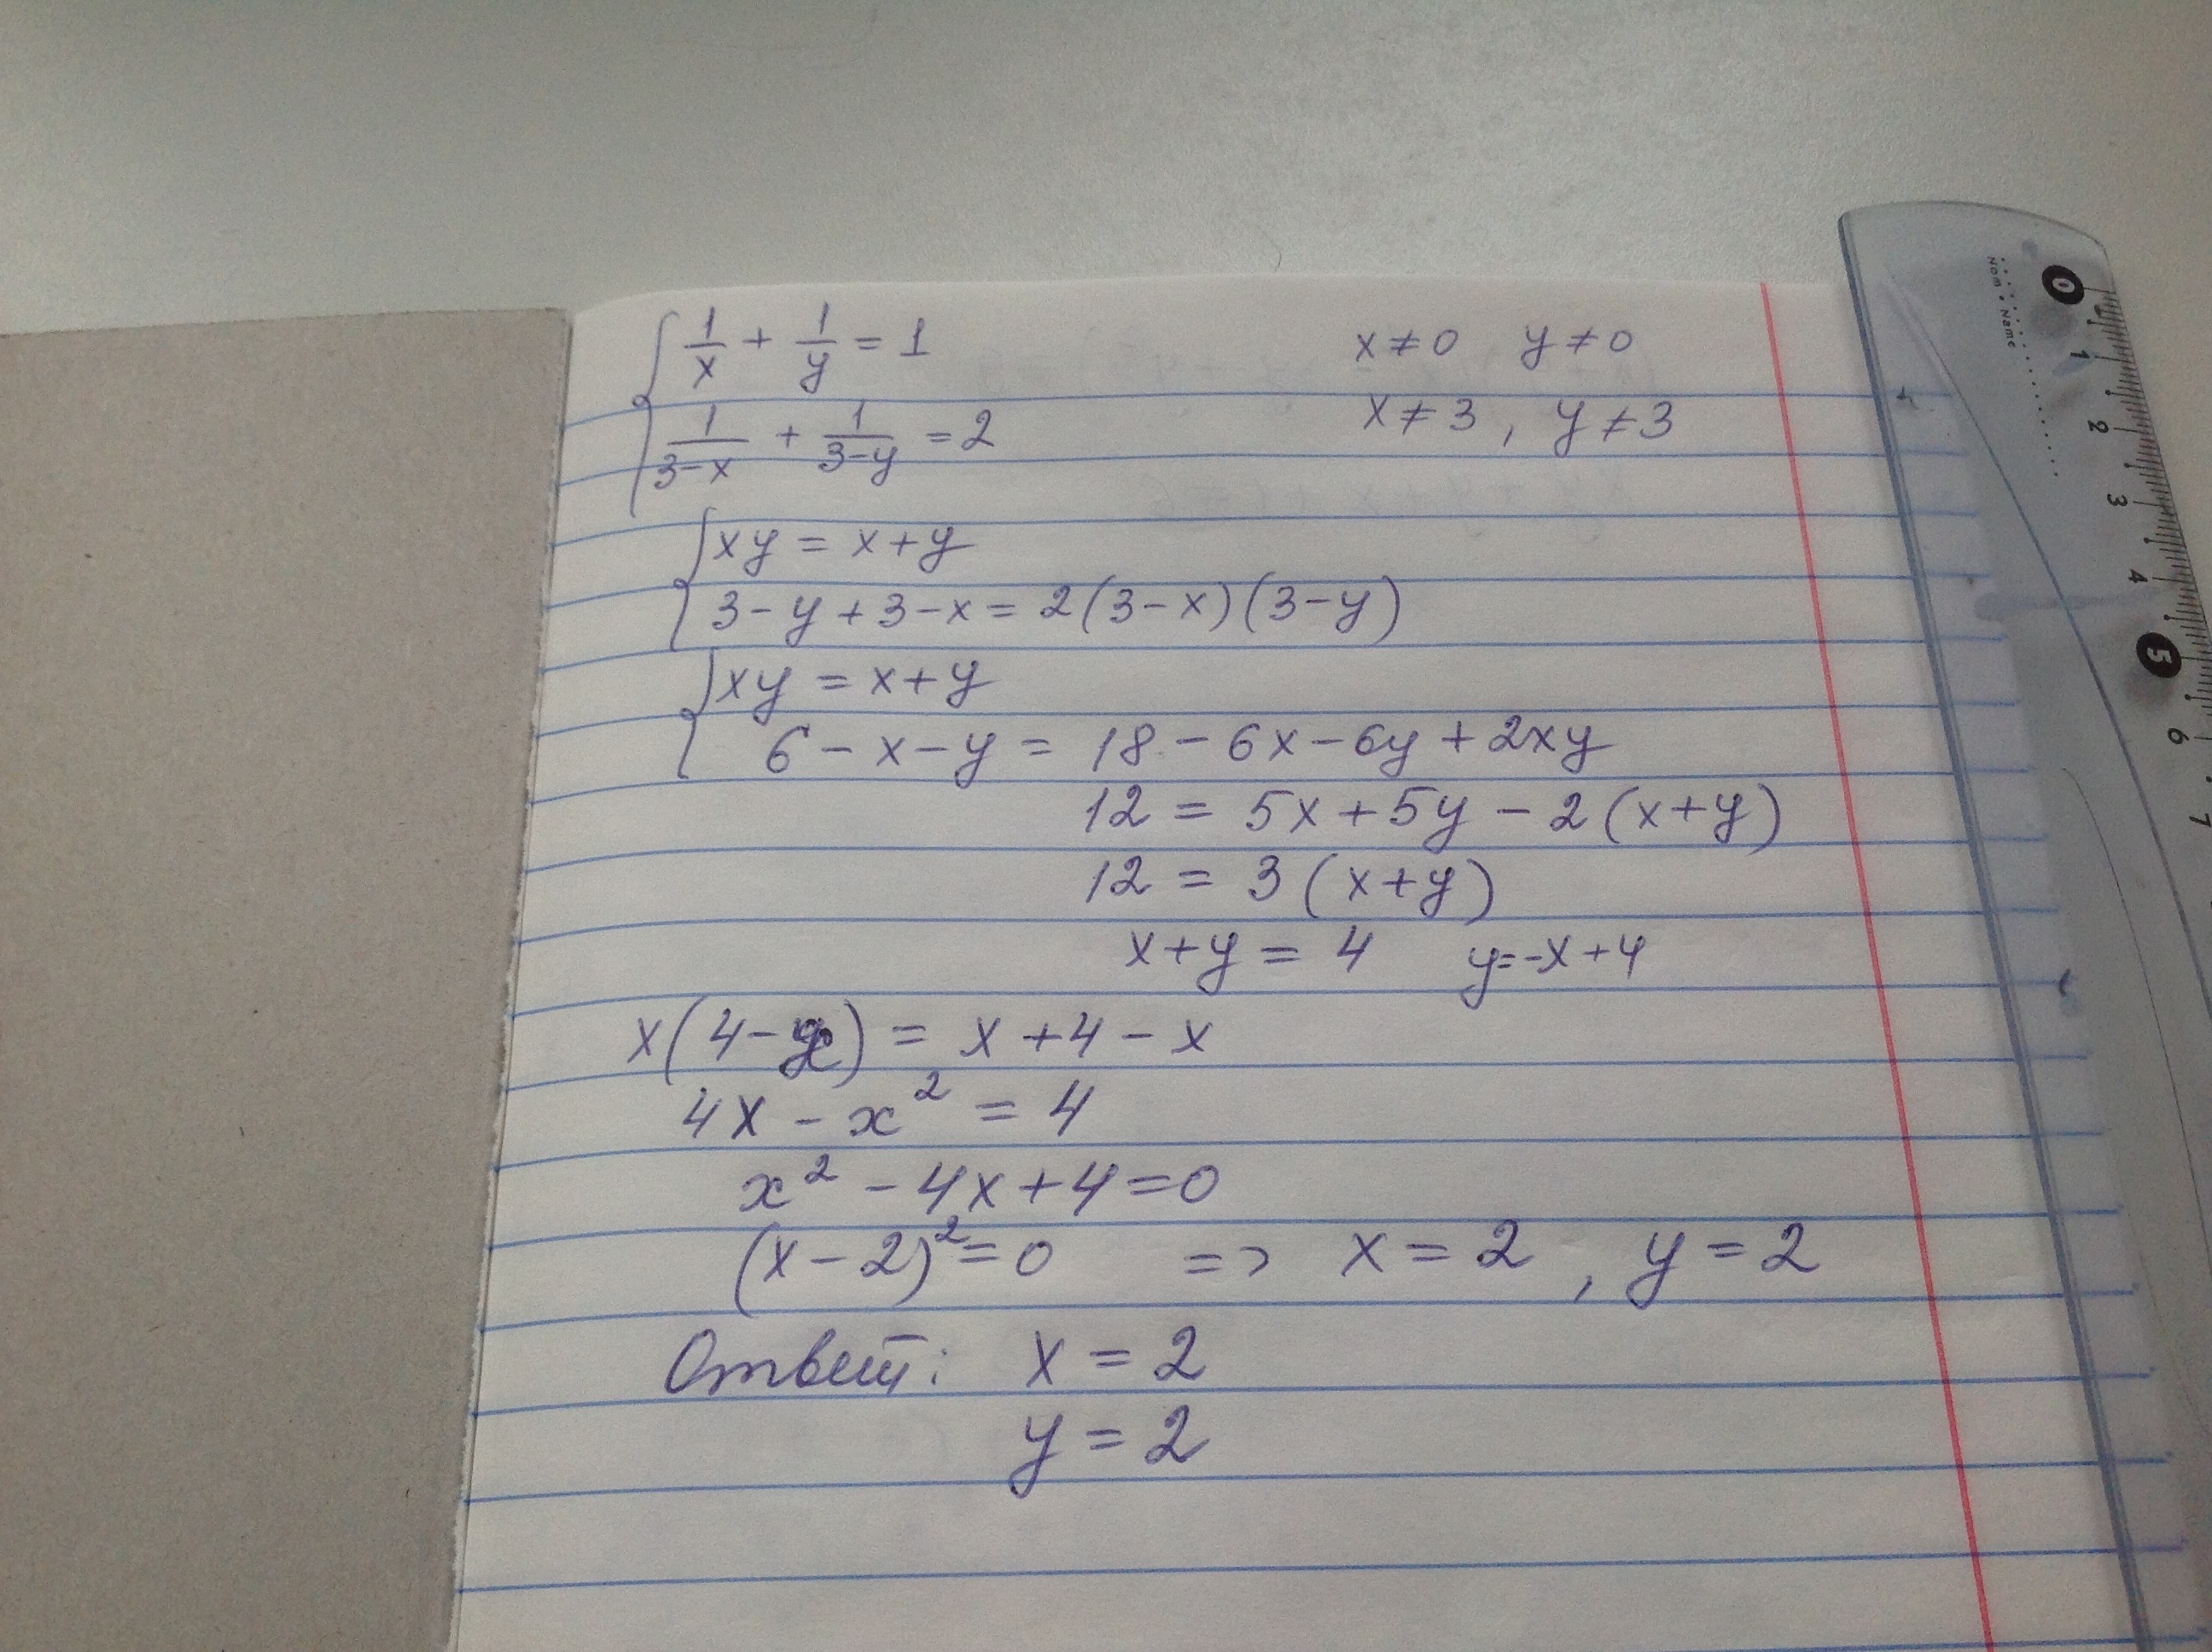 1/x + 1/y = 1    x ≠ 0  y ≠ 0
1/(3-x) + 1/(3-y) = 2    x ≠ 3, y ≠ 3
xy = x+y
3-y+3-x = 2(3-x)(3-y)
xy = x+y
6-x-y = 18-6x-6y+2xy
12 = 5x+5y-2(x+y)
12 = 3(x+y)
x+y = 4    y=-x+4
x(4-x) = x+4-x
4x-x² = 4
x²-4x+4=0
(x-2)²=0  =>  x=2, y=2
Ответ: x=2
y=2
Nom • Name
0
1
2
3
4
5
6
7